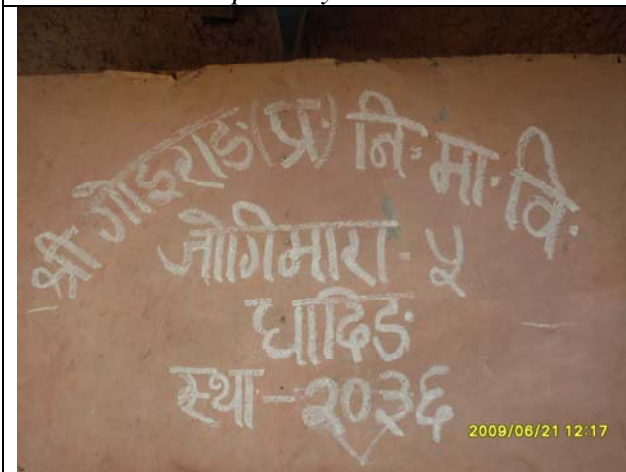 श्री गोड्राङ (प्र) नि· मा· वि·
जोगिमारा - ५
धादिङ
स्था - २०३६
2009/06/21 12:17